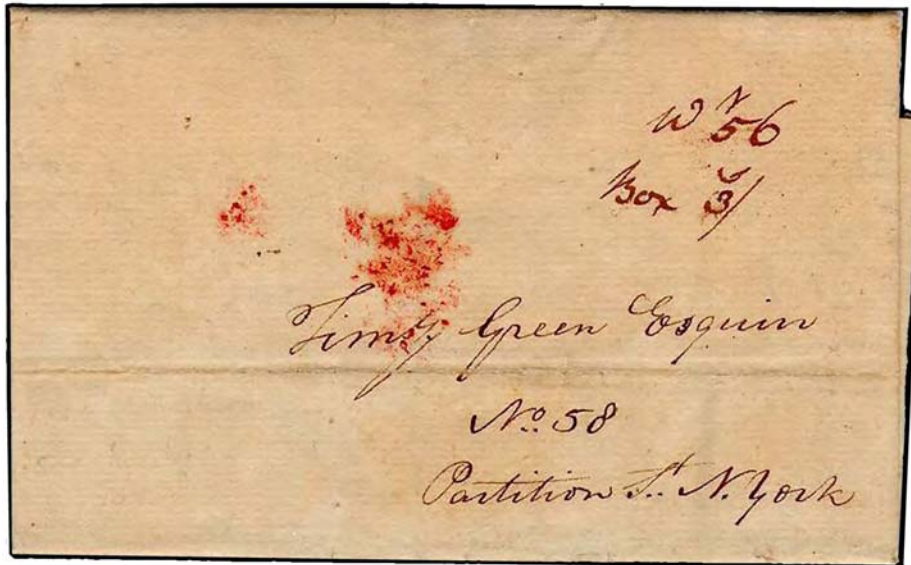 56
Box 3/
Timy Green Esquire
No. 58
Partition St. N. York